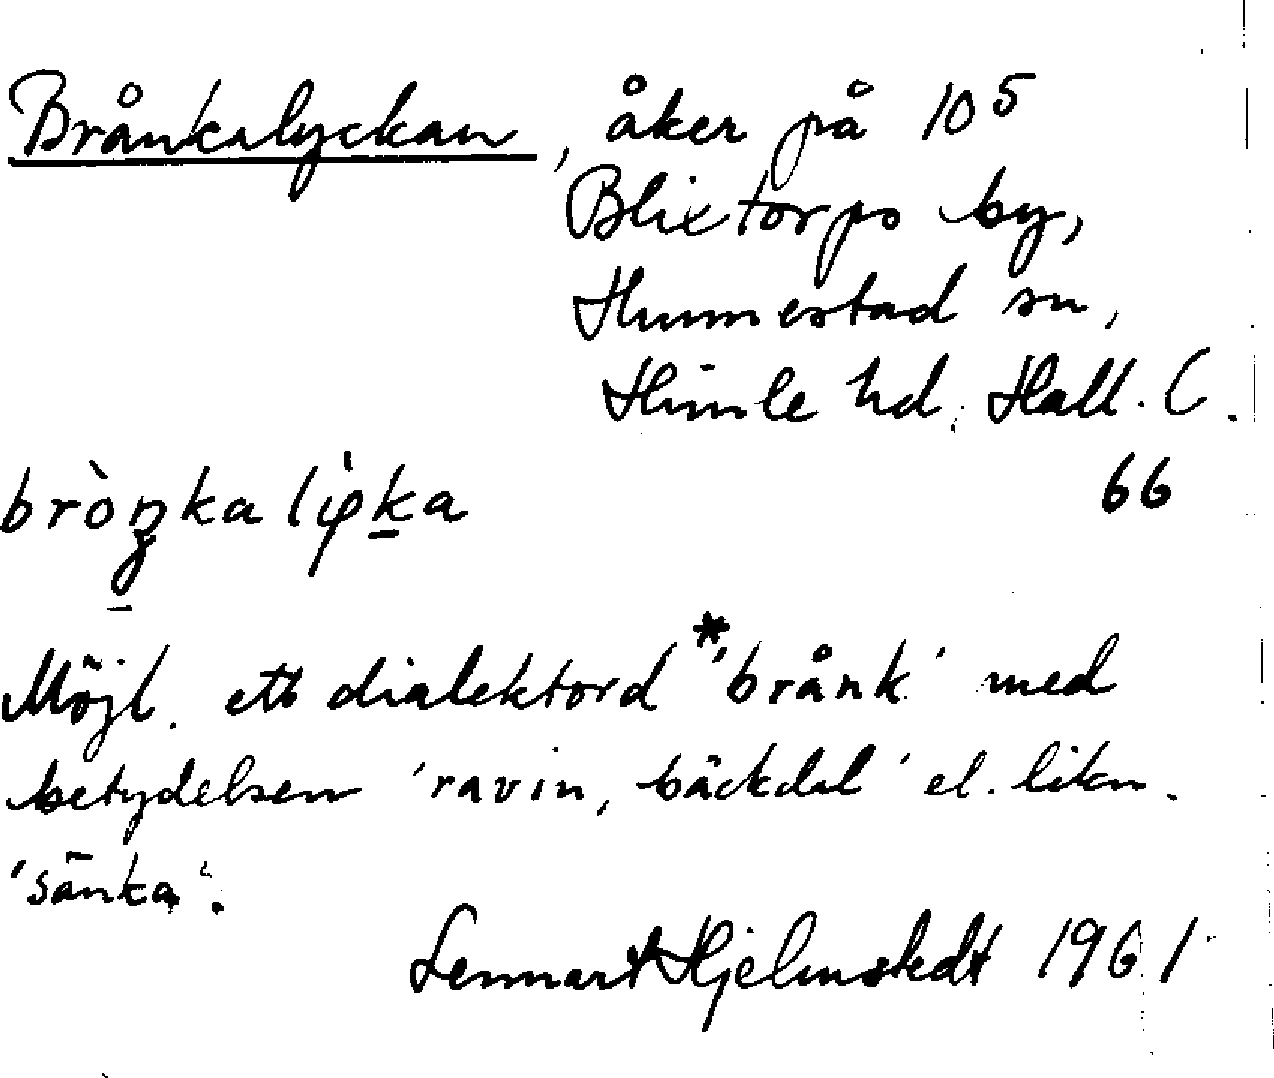 Brånkalyckan, åker på 10⁵
Blixtorps by,
Hunnestad sn,
Himle hd, Hall. C.
66
Möjl. ett dialektord *'brånk' med
betydelsen 'ravin, bäckdal' el. likn.
'sänka'.
Lennart Hjelmstedt 1961